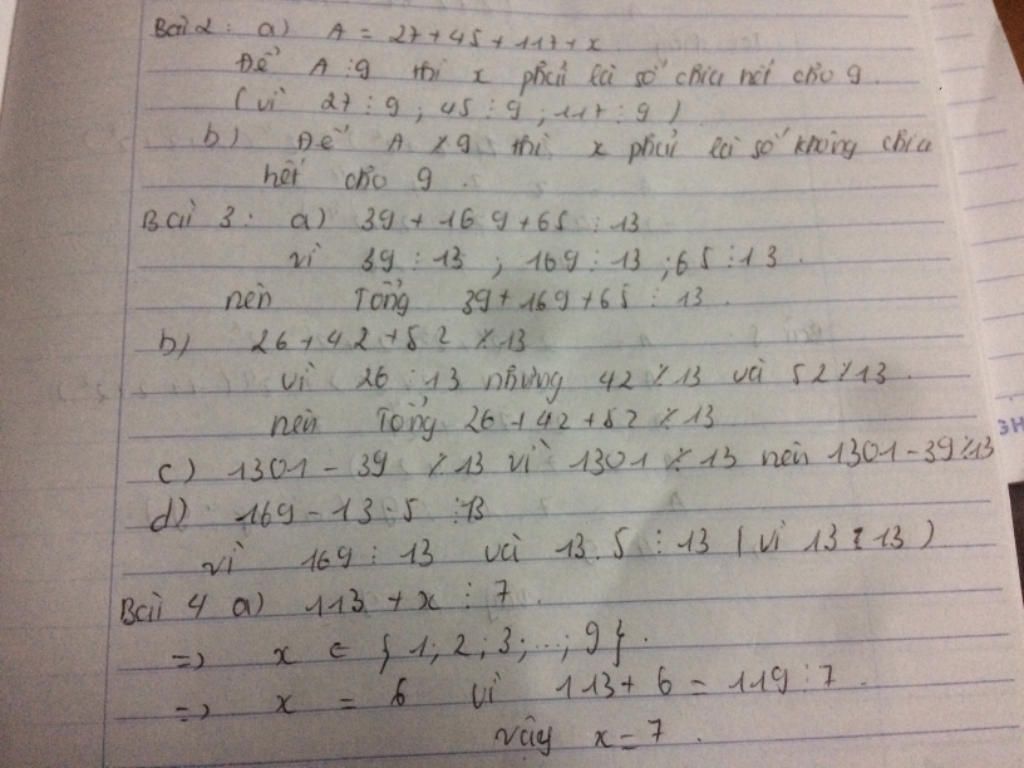 Bài 2: a) A = 27+45+117+x
Để A ⋮ 9 thì x phải là số chia hết cho 9.
(vì 27 ⋮ 9 ; 45 ⋮ 9 ; 117 ⋮ 9)
b) Để A ⋮̸ 9 thì x phải là số không chia
hết cho 9.
Bài 3: a) 39+169+65 ⋮ 13
vì 39 ⋮ 13 ; 169 ⋮ 13 ; 65 ⋮ 13.
nên Tổng 39+169+65 ⋮ 13.
b) 26+42+52 ⋮̸ 13
vì 26 ⋮ 13 nhưng 42 ⋮̸ 13 và 52 ⋮̸ 13.
nên Tổng 26+42+52 ⋮̸ 13
c) 1301 - 39 ⋮̸ 13 vì 1301 ⋮̸ 13 nên 1301-39 ⋮̸ 13
d) 169-13.5 ⋮ 13
vì 169 ⋮ 13 và 13.5 ⋮ 13 (vì 13 ⋮ 13)
Bài 4 a) 113 + x ⋮ 7.
=> x ∈ {1; 2; 3; ...; 9}.
=> x = 6 vì 113+6 = 119 ⋮ 7.
vậy x = 7.